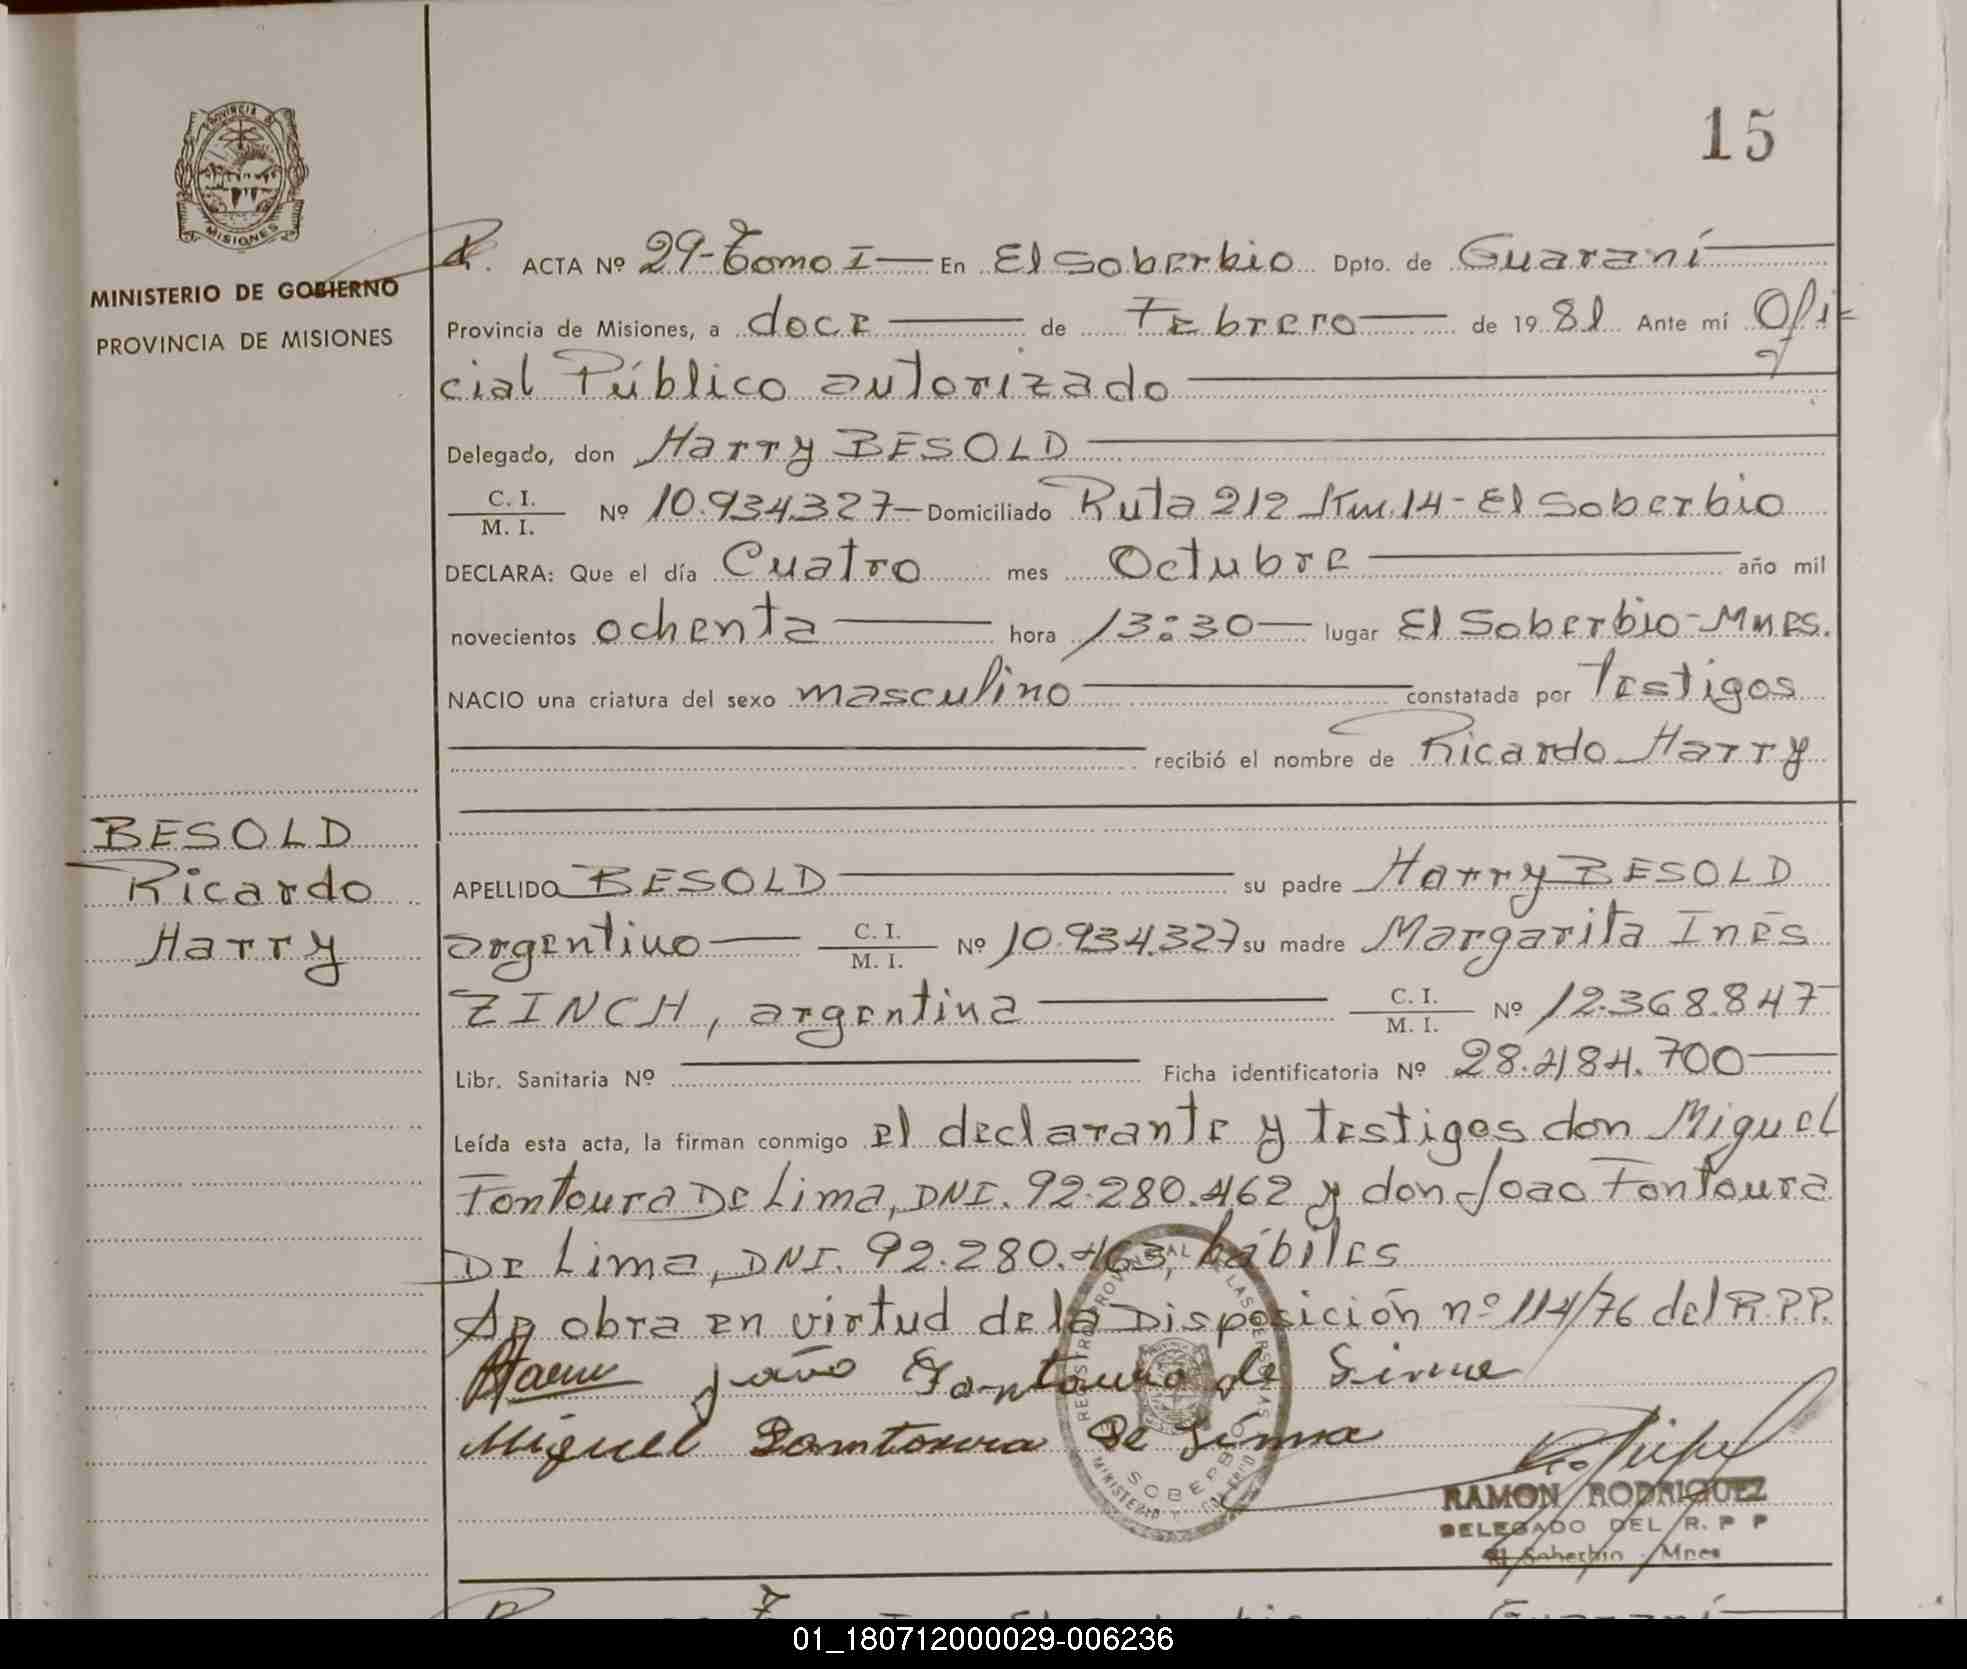 15
PROVINCIA DE
MISIONES
MINISTERIO DE GOBIERNO
PROVINCIA DE MISIONES
ACTA Nº 29-Tomo I — En El Soberbio Dpto. de Guaraní
Provincia de Misiones, a doce de Febrero de 1981 Ante mí Ofi-
cial Público autorizado
Delegado, don Harry BESOLD
C. I. / M. I. Nº 10.934.327 — Domiciliado Ruta 212 Km. 14 - El Soberbio
DECLARA: Que el día Cuatro mes Octubre año mil
novecientos ochenta hora 13:30 — lugar El Soberbio - Mnes.
NACIO una criatura del sexo masculino constatada por Testigos
recibió el nombre de Ricardo Harry
BESOLD
Ricardo
Harry
APELLIDO BESOLD su padre Harry BESOLD
argentino — C. I. / M. I. Nº 10.934.327 su madre Margarita Inés
ZINCH, argentina C. I. / M. I. Nº 12.368.847
Libr. Sanitaria Nº Ficha identificatoria Nº 28.484.700
Leída esta acta, la firman conmigo el declarante y testigos don Miguel
Fontoura De Lima, DNI. 92.280.462 y don Joao Fontoura
De Lima, DNI. 92.280.463, hábiles
Se obra en virtud de la Disposición nº 114/76 del R.P.P.
João Fontoura de Lima
Miguel Fomtoura De Lima
REGISTRO PROVINCIAL DE LAS PERSONAS
SOBERBIO
MINISTERIO
RAMON RODRIGUEZ
DELEGADO DEL R. P P
El Soberbio - Mnes
01_180712000029-006236